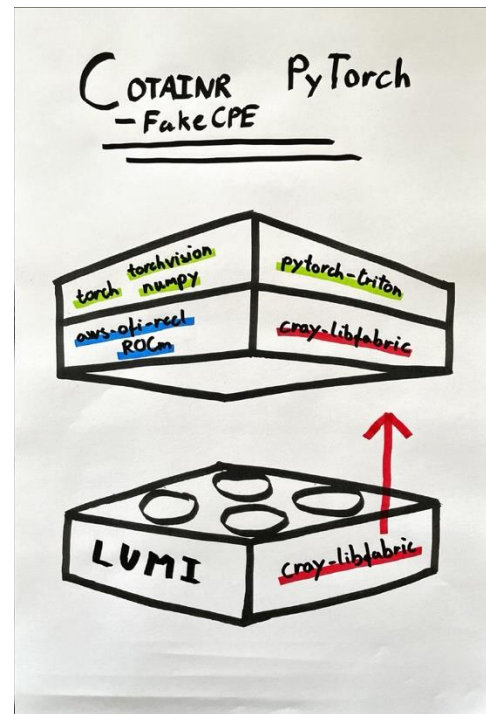 COTAINR PyTorch
- FakeCPE
torch torchvision
numpy
pytorch-triton
aws-ofi-rccl
ROCm
cray-libfabric
LUMI
cray-libfabric